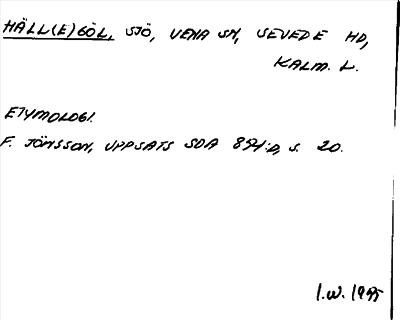 HÄLL(E)GÖL, SJÖ, VENA SN, SEVEDE HD,
KALM. L.
ETYMOLOGI.
F. JÖNSSON, UPPSATS SOA 894:D, S. 20.
I.W. 1995